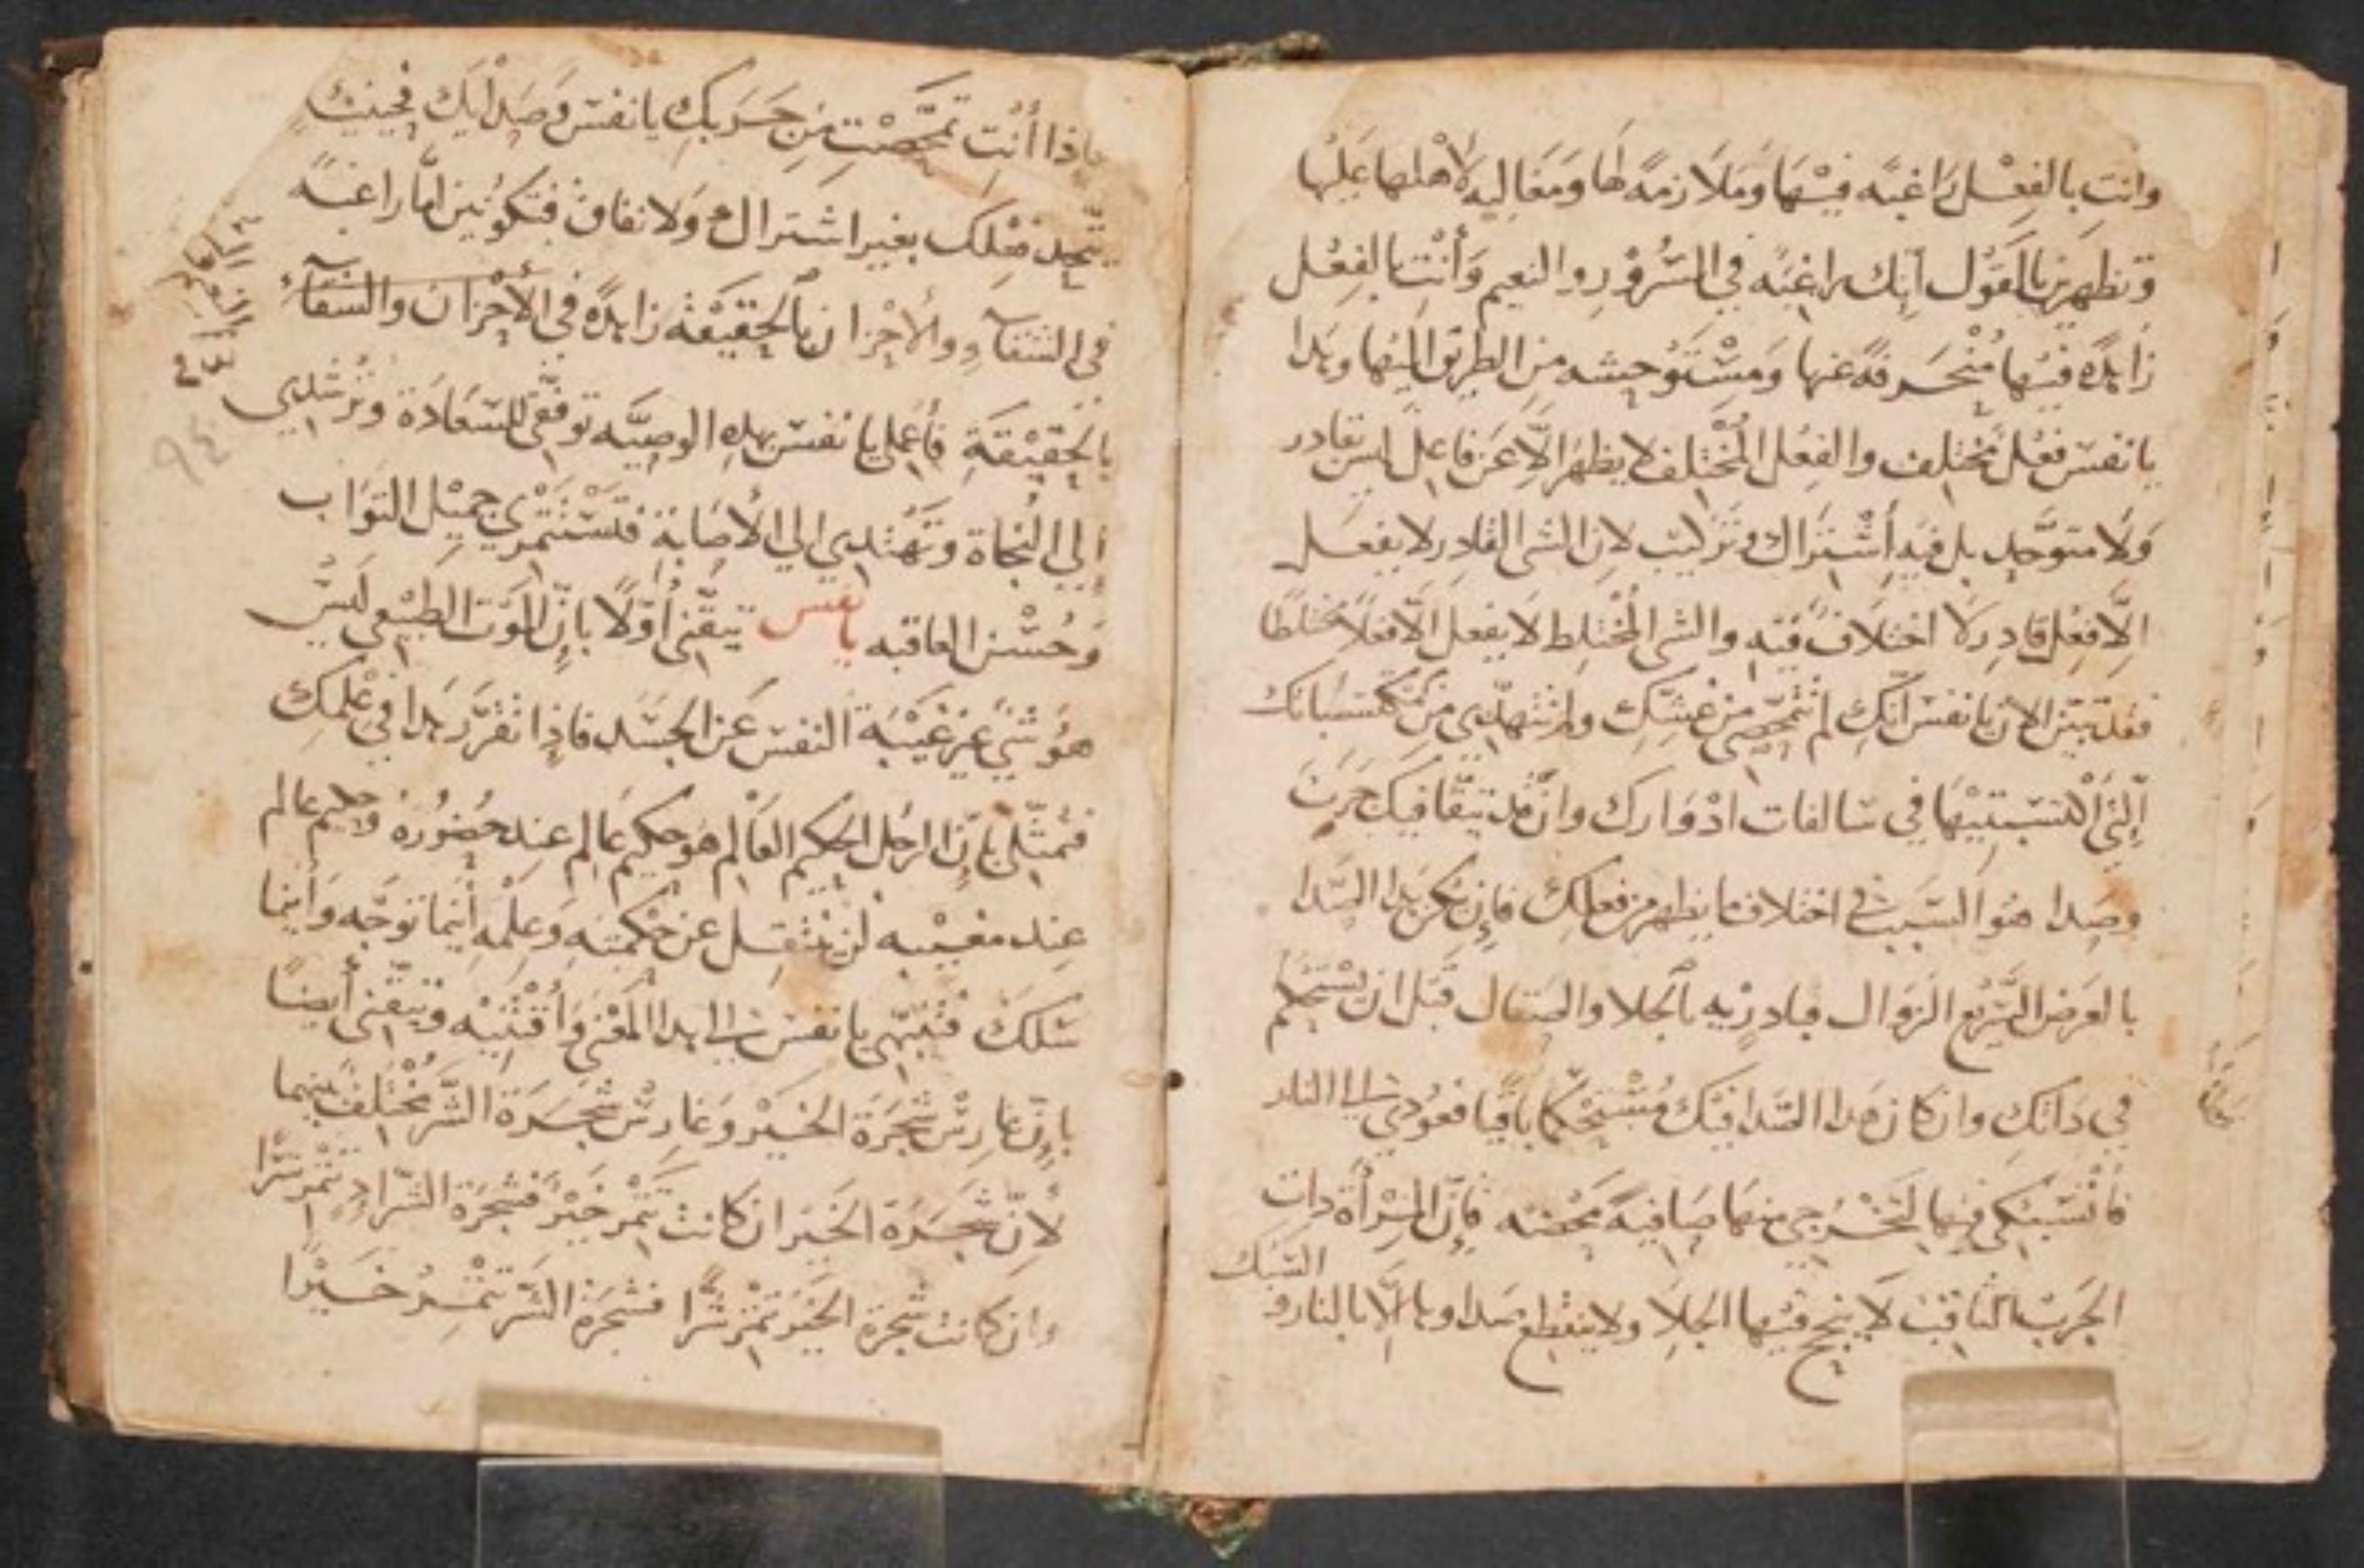 وانت بالفِعْل رَاغبَه فيْهَا وَمَلَازمَةً لها وَمغَاليه لأهْلها عَليْها
وَتظهرين بالقَوْل انك راغبَه في السُّرُوْرِ والنعِيم وَأنْتِ بالفِعْل
زَاهدَه فيْها مُنْحَرفةً عنها وَمسْتَوْحِشه مِن الطريق اليْها وهدا
يا نفسَ فعْل مُخْتلف والفِعْل المُخْتلف لا يظهَر الَّا عَن فاعِل ليس بقادر
وَلا متوَحِّدٍ بل فيْهِ أشْتراك وتَرْكيب لان الشى القادِر لا يفعَل
الَّا فِعْل قادِر لا اختلاف فيْه والشى المُخْتلِط لا يفعل الَّا فعْلًا مختلطًا
فقد تبيّن الان يا نفسَ انّكِ لم تتمحّصِي من غشّكِ ولم تتهدّبي من مكتسَباتك
الّتي اكْتسَبتيْها في سَالفات ادْوَارك وانّه قد تبقّا فيكِ جَرَبٌ
وصَدا هُوَ السَّبَبْ في اختلاف ما يظهر من فعلكِ فإن يكن هدا الصَّدا
بالعَرَض السَّرِيع الزوَال فبادريْه بالجلا والصقال قبَل ان يسْتحْكم
في داتكِ وان كان هَدا الصَّدا فيْكِ مُسْتحْكمًا باقيًا فعُودي الى النار
فأنْسَبكي فيها لتخْرُجي منها صَافيةً محْضَه فإنّ المِرْأة دات
الجَرَب الثاقب لَا ينجح فيْها الجَلَا ولا ينقطع صَداوها الَّا بالنار و
السّبْك
فإذا أنْتِ تمحّصْتِ مِن جَرَبكِ يا نفسَ وَصَدائكِ فحينئذ
يتّحِد فعْلكِ بغيْر اشتراك وَلا نفاق فتكونين امَّا راغبَه
في الشقآءِ والأحْزان بالحَقيْقه زاهدَه في الأحْزان والشقآءِ
بالحَقيْقَةِ فأعْملي يا نفسَ بهدهِ الوصِيّه توفّقي للسّعَادَة وترْشدِي
إلي النجَاة وتهْتدِي الي الأصَابة فتسْتثْمري جميْل الثوَاب
وَحُسْن العاقبه يا نفس تيقّني أوّلًا بإنّ الموْت الطبيْعي ليْسَ
هوَ شيْ غير غيْبَة النفسَ عَن الجسَد فاذا تقرّرَ هَدا في علمكِ
فتمثّلي بإنّ الرجُل الحكيم العَالم هوَ حكيم عَالم عِند حضُوره وحكيم عالم
عِند مغيْبه لن ينتقِل عَن حكْمتِه وَعِلمِه أينما توَجّه وَأينما
سَلكْ فتنبّهي يا نفسَ الى هدا المَعْنى وَأقتنيْه وتيقّني أيضًا
بإنّ غارسْ شجَرَة الخيْر وَغارسْ شجَرَة الشّر مُخْتلف بينهما
لأنّ شجَرَة الخَيْر ان كانت تثمِر خيْرًا فشجرَة الشّر اذ تثمر شرًّا
وان كانت شجرة الخَيْر تثمر شرًّا فشجرَة الشّر تثمِرُ خَيْرًا
٩٤